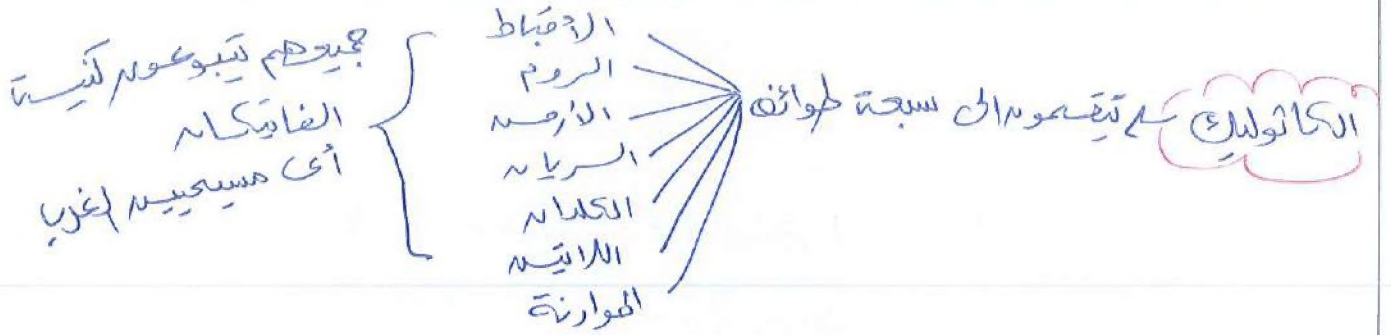 الكاثوليك ← ينقسمون الى سبعة طوائف
الأقباط
الروم
الأرمن
السريان
الكلدان
اللاتين
الموارنة
جميعهم يتبعون كنيسة
الفاتيكان
أى مسيحيين الغرب